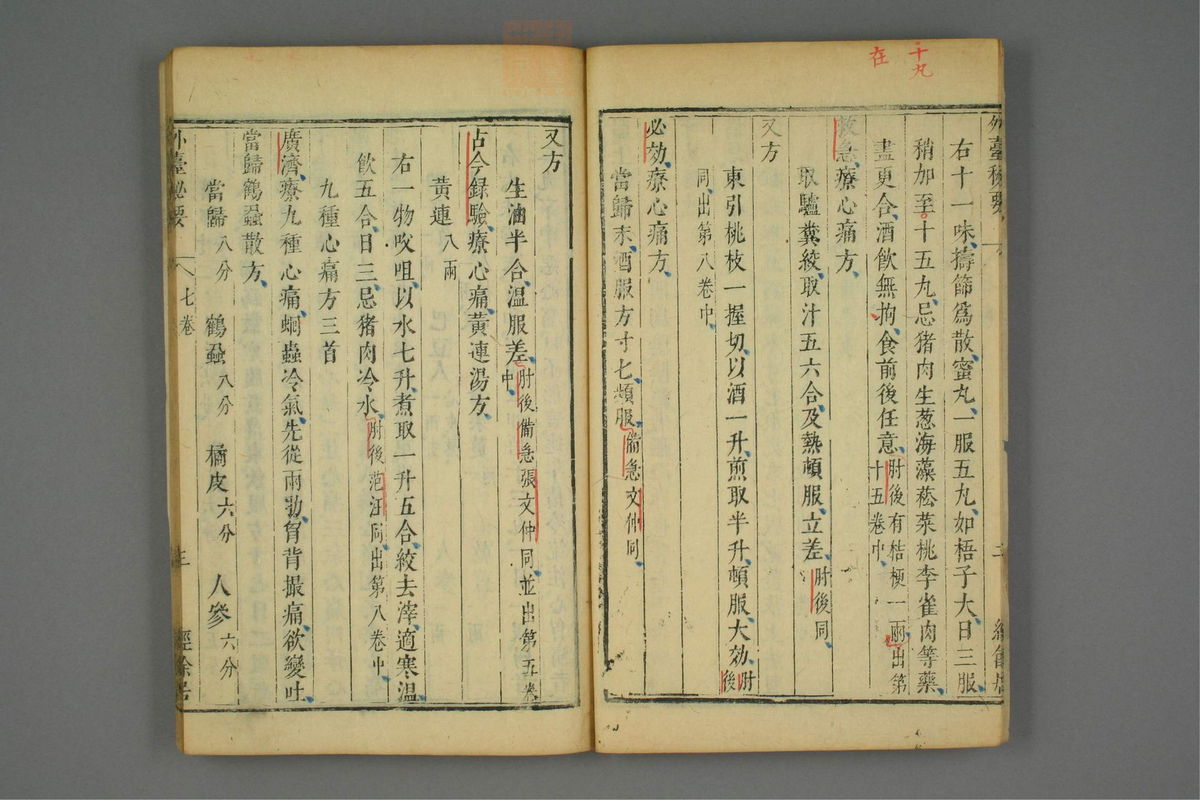 十丸
在
右十一味擣篩爲散蜜丸一服五丸如梧子大日三服
稍加至十五丸忌猪肉生葱海藻菘菜桃李雀肉等藥
盡更合酒飲無拘食前後任意肘後有桔梗一兩出第十五卷中
救急療心痛方
取驢糞絞取汁五六合及熱頓服立差肘後同
又方
東引桃枝一握切以酒一升煎取半升頓服大効肘後
同出第八卷中
必効療心痛方
當歸末酒服方寸匕頻服備急文仲同
又方
生油半合温服差肘後備急張文仲同並出第五卷中
古今録驗療心痛黄連湯方
黄連八兩
右一物㕮咀以水七升煮取一升五合絞去滓適寒温
飲五合日三忌猪肉冷水肘後范汪同出第八卷中
九種心痛方三首
廣濟療九種心痛蛔蟲冷氣先從兩肋胷背撮痛欲變吐
當歸鶴蝨散方
當歸八分 鶴蝨八分 橘皮六分 人參六分
外臺秘要 七卷 三 經餘居